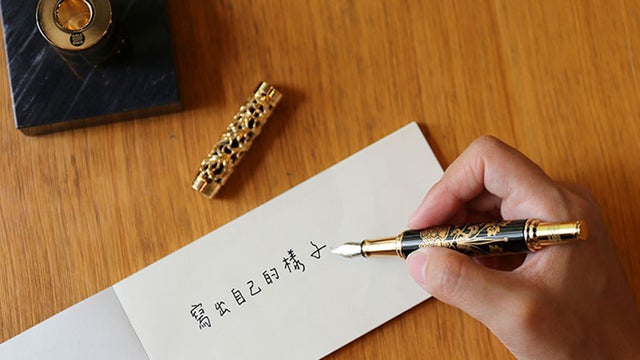 寫出自己的樣子